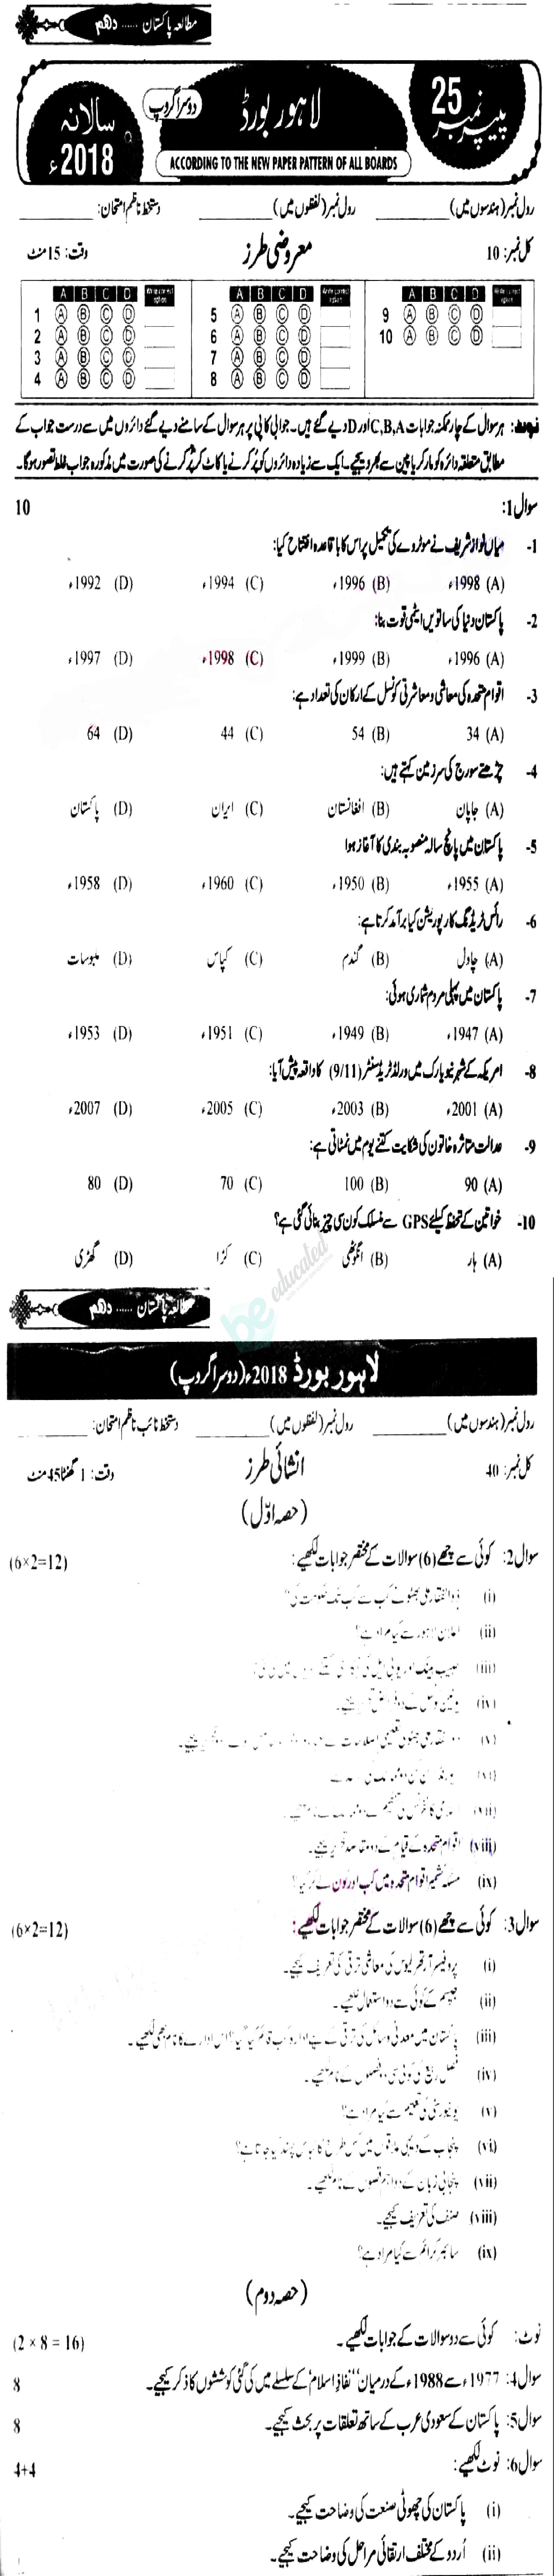 مطالعہ پاکستان ...... دہم
سالانہ 2018ء
دوسرا گروپ
لاہور بورڈ
پیپر نمبر 25
ACCORDING TO THE NEW PAPER PATTERN OF ALL BOARDS
رول نمبر (ہندسوں میں) ________ رول نمبر (لفظوں میں) ________ دستخط ناظم امتحان: ________
کل نمبر: 10 معروضی طرز وقت: 15 منٹ
A B C D Write correct option A B C D Write correct option A B C D Write correct option
1 A B C D 5 A B C D 9 A B C D
2 A B C D 6 A B C D 10 A B C D
3 A B C D 7 A B C D
4 A B C D 8 A B C D
نوٹ: ہر سوال کے چار ممکنہ جوابات C,B,A اور D دیے گئے ہیں۔ جوابی کاپی پر ہر سوال کے سامنے دیے گئے دائروں میں سے درست جواب کے
مطابق متعلقہ دائرہ کو مارکر یا پین سے بھر دیجیے۔ ایک سے زیادہ دائروں کو پُر کرنے یا کاٹ کر پُر کرنے کی صورت میں مذکورہ جواب غلط تصور ہوگا۔
سوال 1: 10
1- میاں نواز شریف نے موٹروے کی تکمیل پر اس کا باقاعدہ افتتاح کیا:
(A) 1998ء (B) 1996ء (C) 1994ء (D) 1992ء
2- پاکستان دنیا کی ساتویں ایٹمی قوت بنا:
(A) 1996ء (B) 1999ء (C) 1998ء (D) 1997ء
3- اقوام متحدہ کی معاشی و معاشرتی کونسل کے ارکان کی تعداد ہے:
(A) 34 (B) 54 (C) 44 (D) 64
4- چڑھتے سورج کی سرزمین کہتے ہیں:
(A) جاپان (B) افغانستان (C) ایران (D) پاکستان
5- پاکستان میں پانچ سالہ منصوبہ بندی کا آغاز ہوا
(A) 1955ء (B) 1950ء (C) 1960ء (D) 1958ء
6- رائس ٹریڈنگ کارپوریشن کیا برآمد کرتا ہے:
(A) چاول (B) گندم (C) کپاس (D) ملبوسات
7- پاکستان میں پہلی مردم شماری ہوئی:
(A) 1947ء (B) 1949ء (C) 1951ء (D) 1953ء
8- امریکہ کے شہر نیویارک میں ورلڈ ٹریڈ سنٹر (9/11) کا واقعہ پیش آیا:
(A) 2001ء (B) 2003ء (C) 2005ء (D) 2007ء
9- عدالت متاثرہ خاتون کی شکایت کتنے یوم میں نمٹاتی ہے:
(A) 90 (B) 100 (C) 70 (D) 80
10- خواتین کے تحفظ کیلئے GPS سے منسلک کون سی چیز بنائی گئی ہے؟
(A) ہار (B) انگوٹھی (C) کڑا (D) گھڑی
be educated
مطالعہ پاکستان ...... دہم
لاہور بورڈ 2018ء (دوسرا گروپ)
رول نمبر (ہندسوں میں) ________ رول نمبر (لفظوں میں) ________ دستخط نائب ناظم امتحان: ________
کل نمبر: 40 انشائی طرز وقت: 1 گھنٹا 45 منٹ
(حصہ اوّل)
سوال 2: کوئی سے چھے (6) سوالات کے مختصر جوابات لکھیے: (6×2=12)
(i) ذوالفقار علی بھٹو نے کب سے کب تک حکومت کی؟
(ii) اعلان لاہور سے کیا مراد ہے؟
(iii)
(iv)
(v)
(vi)
(vii)
(viii) اقوام متحدہ کے قیام کے دو مقاصد تحریر کیجیے۔
(ix) مسئلہ کشمیر اقوام متحدہ میں کب اور کون لے کر گیا؟
سوال 3: کوئی سے چھے (6) سوالات کے مختصر جوابات لکھیے: (6×2=12)
(i) پروفیسر آرتھر لیوس کی معاشی ترقی کی تعریف کیجیے۔
(ii) جپسم کے کوئی سے دو استعمال لکھیے۔
(iii) پاکستان میں معدنی وسائل کی ترقی کے لیے ادارہ کب قائم کیا گیا؟ اس ادارے کا نام بھی لکھیے۔
(iv) فصل ربیع کی کوئی سی دو فصلوں کے نام لکھیے۔
(v) یونیورسٹی کی تعلیم سے کیا مراد ہے؟
(vi) پنجاب کے دیہی علاقوں میں کس طرح کا لباس پہنا جاتا ہے؟
(vii) پنجابی زبان کے دو اہم قصوں کے نام لکھیے۔
(viii) صنف کی تعریف کیجیے۔
(ix) سائبر کرائم سے کیا مراد ہے؟
(حصہ دوم)
نوٹ: کوئی سے دو سوالات کے جوابات لکھیے۔ (2 × 8 = 16)
سوال 4: 1977ء سے 1988ء کے درمیان "نفاذِ اسلام" کے سلسلے میں کی گئی کوششوں کا ذکر کیجیے۔ 8
سوال 5: پاکستان کے سعودی عرب کے ساتھ تعلقات پر بحث کیجیے۔ 8
سوال 6: نوٹ لکھیے: 4+4
(i) پاکستان کی چھوٹی صنعت کی وضاحت کیجیے۔
(ii) اُردو کے مختلف ارتقائی مراحل کی وضاحت کیجیے۔